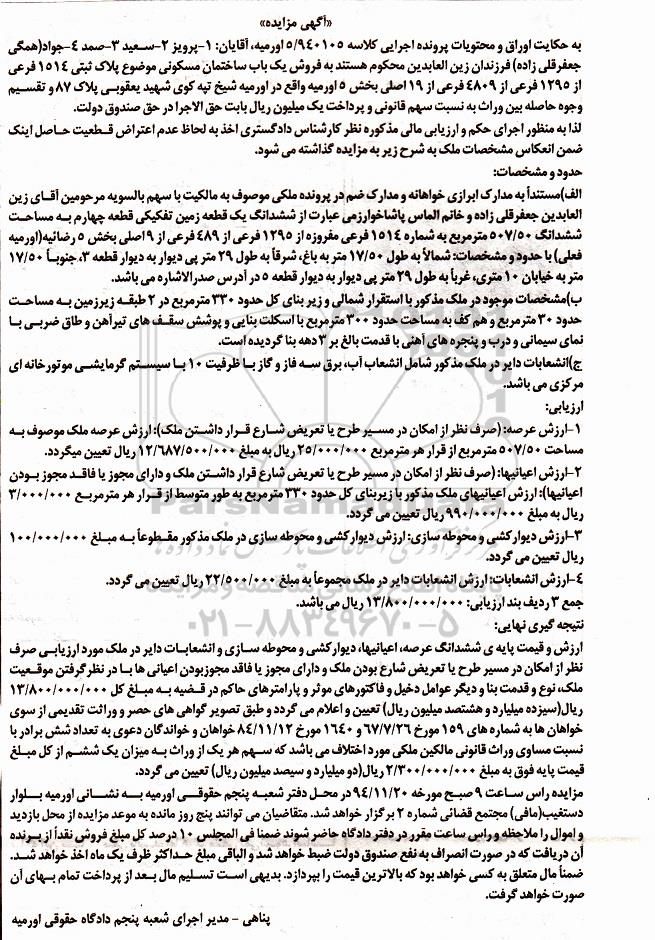 «آگهی مزایده»
به حکایت اوراق و محتویات پرونده اجرایی کلاسه ۵/۹۴۰۱۰۵ اورمیه، آقایان: ۱-پرویز ۲-سعید ۳-صمد ۴-جواد(همگی
جعفرقلی زاده) فرزندان زین العابدین محکوم هستند به فروش یک باب ساختمان مسکونی موضوع پلاک ثبتی ۱۵۱۴ فرعی
از ۱۲۹۵ فرعی از ۴۸۰۹ فرعی از ۱۹ اصلی بخش ۵ اورمیه واقع در اورمیه شیخ تپه کوی شهید یعقوبی پلاک ۸۷ و تقسیم
وجوه حاصله بین وراث به نسبت سهم قانونی و پرداخت یک میلیون ریال بابت حق الاجرا در حق صندوق دولت.
لذا به منظور اجرای حکم و ارزیابی مالی مذکوره نظر کارشناس دادگستری اخذ به لحاظ عدم اعتراض قطعیت حاصل اینک
ضمن انعکاس مشخصات ملک به شرح زیر به مزایده گذاشته می شود.
حدود و مشخصات:
الف)مستنداً به مدارک ابرازی خواهانه و مدارک ضم در پرونده ملکی موصوف به مالکیت با سهم بالسویه مرحومین آقای زین
العابدین جعفرقلی زاده و خانم الماس پاشاخوارزمی عبارت از ششدانگ یک قطعه زمین تفکیکی قطعه چهارم به مساحت
ششدانگ ۵۰۷/۵۰ مترمربع به شماره ۱۵۱۴ فرعی مفروزه از ۱۲۹۵ فرعی از ۴۸۹ فرعی از ۹ اصلی بخش ۵ رضائیه(اورمیه
فعلی) با حدود و مشخصات: شمالاً به طول ۱۷/۵۰ متر به باغ، شرقاً به طول ۲۹ متر پی دیوار به دیوار قطعه ۳، جنوباً ۱۷/۵۰
متر به خیابان ۱۰ متری، غرباً به طول ۲۹ متر پی دیوار به دیوار قطعه ۵ در آدرس صدرالاشاره می باشد.
ب)مشخصات موجود در ملک مذکور با استقرار شمالی و زیر بنای کل حدود ۳۳۰ مترمربع در ۲ طبقه زیرزمین به مساحت
حدود ۳۰ مترمربع و هم کف به مساحت حدود ۳۰۰ مترمربع با اسکلت بنایی و پوشش سقف های تیرآهن و طاق ضربی با
نمای سیمانی و درب و پنجره های آهنی با قدمت بالغ بر ۳ دهه بنا گردیده است.
ج)انشعابات دایر در ملک مذکور شامل انشعاب آب، برق سه فاز و گاز با ظرفیت ۱۰ با سیستم گرمایشی موتورخانه ای
مرکزی می باشد.
ارزیابی:
۱-ارزش عرصه: (صرف نظر از امکان در مسیر طرح یا تعریض شارع قرار داشتن ملک): ارزش عرصه ملک موصوف به
مساحت ۵۰۷/۵۰ مترمربع از قرار هر مترمربع ۲۵/۰۰۰/۰۰۰ ریال به مبلغ ۱۲/۶۸۷/۵۰۰/۰۰۰ ریال تعیین میگردد.
۲-ارزش اعیانیها: (صرف نظر از امکان در مسیر طرح یا تعریض شارع قرار داشتن ملک و دارای مجوز یا فاقد مجوز بودن
اعیانیها): ارزش اعیانیهای ملک مذکور با زیربنای کل حدود ۳۳۰ مترمربع به طور متوسط از قرار هر مترمربع ۳/۰۰۰/۰۰۰
ریال به مبلغ ۹۹۰/۰۰۰/۰۰۰ ریال تعیین می گردد.
۳-ارزش دیوارکشی و محوطه سازی: ارزش دیوارکشی و محوطه سازی در ملک مذکور مقطوعاً به مبلغ ۱۰۰/۰۰۰/۰۰۰
ریال تعیین می گردد.
۴-ارزش انشعابات: ارزش انشعابات دایر در ملک مجموعاً به مبلغ ۲۲/۵۰۰/۰۰۰ ریال تعیین می گردد.
جمع ۳ ردیف بند ارزیابی: ۱۳/۸۰۰/۰۰۰/۰۰۰ ریال می باشد.
نتیجه گیری نهایی:
ارزش و قیمت پایه ی ششدانگ عرصه، اعیانیها، دیوارکشی و محوطه سازی و انشعابات دایر در ملک مورد ارزیابی صرف
نظر از امکان در مسیر طرح یا تعریض شارع بودن ملک و دارای مجوز یا فاقد مجوزبودن اعیانی ها با در نظر گرفتن موقعیت
ملک، نوع و قدمت بنا و دیگر عوامل دخیل و فاکتورهای موثر و پارامترهای حاکم در قضیه به مبلغ کل ۱۳/۸۰۰/۰۰۰/۰۰۰
ریال(سیزده میلیارد و هشتصد میلیون ریال) تعیین و اعلام می گردد و طبق تصویر گواهی های حصر و وراثت تقدیمی از سوی
خواهان ها به شماره های ۱۵۹ مورخ ۶۷/۷/۲۶ و ۱۶۴۰ مورخ ۸۴/۱۱/۱۲ خواهان و خواندگان دعوی به تعداد شش برادر با
نسبت مساوی وراث قانونی مالکین ملکی مورد اختلاف می باشد که سهم هر یک از وراث به میزان یک ششم از کل مبلغ
قیمت پایه فوق به مبلغ ۲/۳۰۰/۰۰۰/۰۰۰ ریال(دو میلیارد و سیصد میلیون ریال) تعیین می گردد.
مزایده راس ساعت ۹ صبح مورخه ۹۴/۱۱/۲۰ در محل دفتر شعبه پنجم حقوقی اورمیه به نشانی اورمیه بلوار
دستغیب(مافی) مجتمع قضائی شماره ۲ برگزار خواهد شد. متقاضیان می توانند پنج روز مانده به موعد مزایده از محل بازدید
و اموال را ملاحظه و راس ساعت مقرر در دفتر دادگاه حاضر شوند ضمنا فی المجلس ۱۰ درصد کل مبلغ فروش نقداً از برنده
آن دریافت که در صورت انصراف به نفع صندوق دولت ضبط خواهد شد و الباقی مبلغ حداکثر ظرف یک ماه اخذ خواهد شد.
ضمناً مال متعلق به کسی خواهد بود که بالاترین قیمت را بپردازد. بدیهی است تسلیم مال بعد از پرداخت تمام بهای آن
صورت خواهد گرفت.
پناهی - مدیر اجرای شعبه پنجم دادگاه حقوقی اورمیه
۰۲۱-۸۸۳۴۹۶۷۰-۵